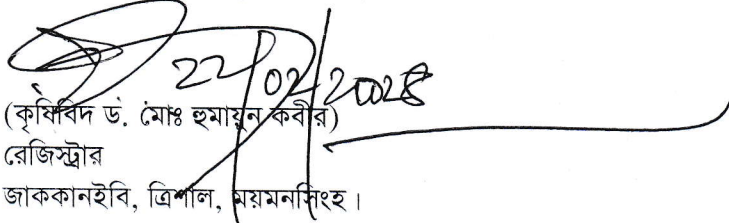 ২২/০২/২০২৪
(কৃষিবিদ ড. মোঃ হুমায়ুন কবীর)
রেজিস্ট্রার
জাককানইবি, ত্রিশাল, ময়মনসিংহ।